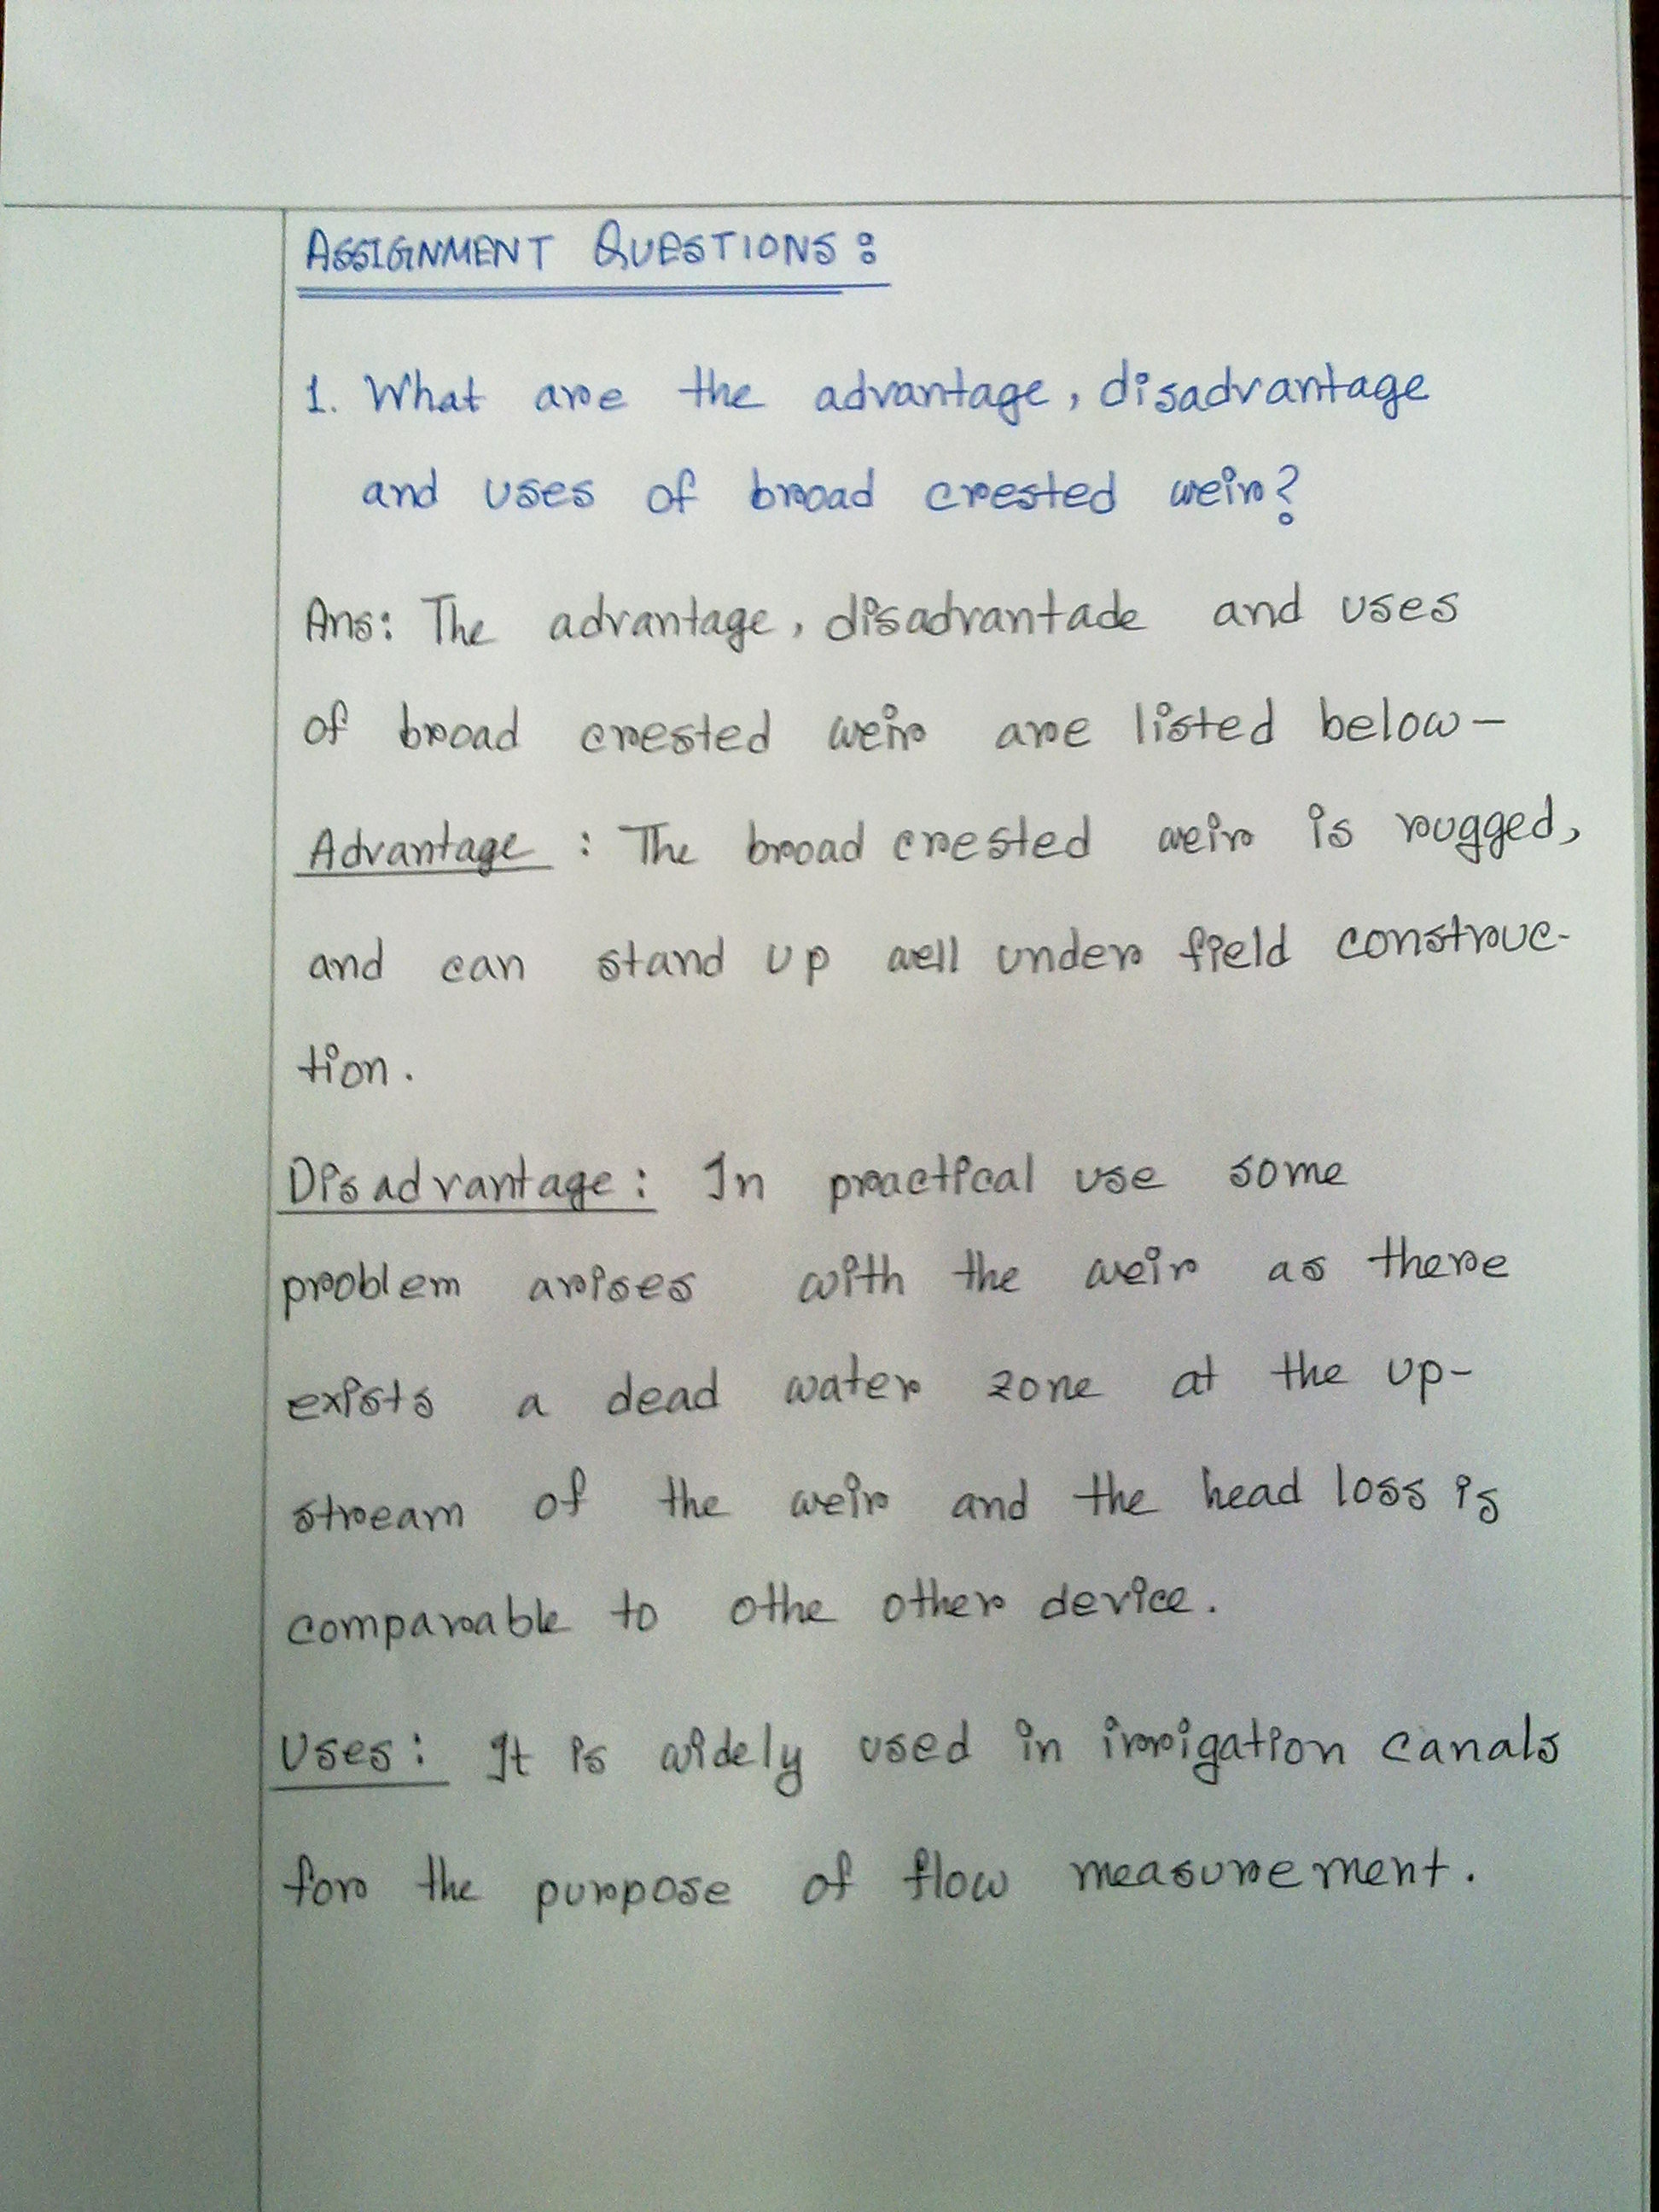 ASSIGNMENT QUESTIONS:
1. What are the advantage, disadvantage
and uses of broad crested weir?
Ans: The advantage, disadvantade and uses
of broad crested weir are listed below-
Advantage : The broad crested weir is rugged,
and can stand up well under field construc-
tion.
Disadvantage: In practical use some
problem arises with the weir as there
exists a dead water zone at the up-
stream of the weir and the head loss is
comparable to othe other device.
Uses: It is widely used in irrigation canals
for the purpose of flow measurement.